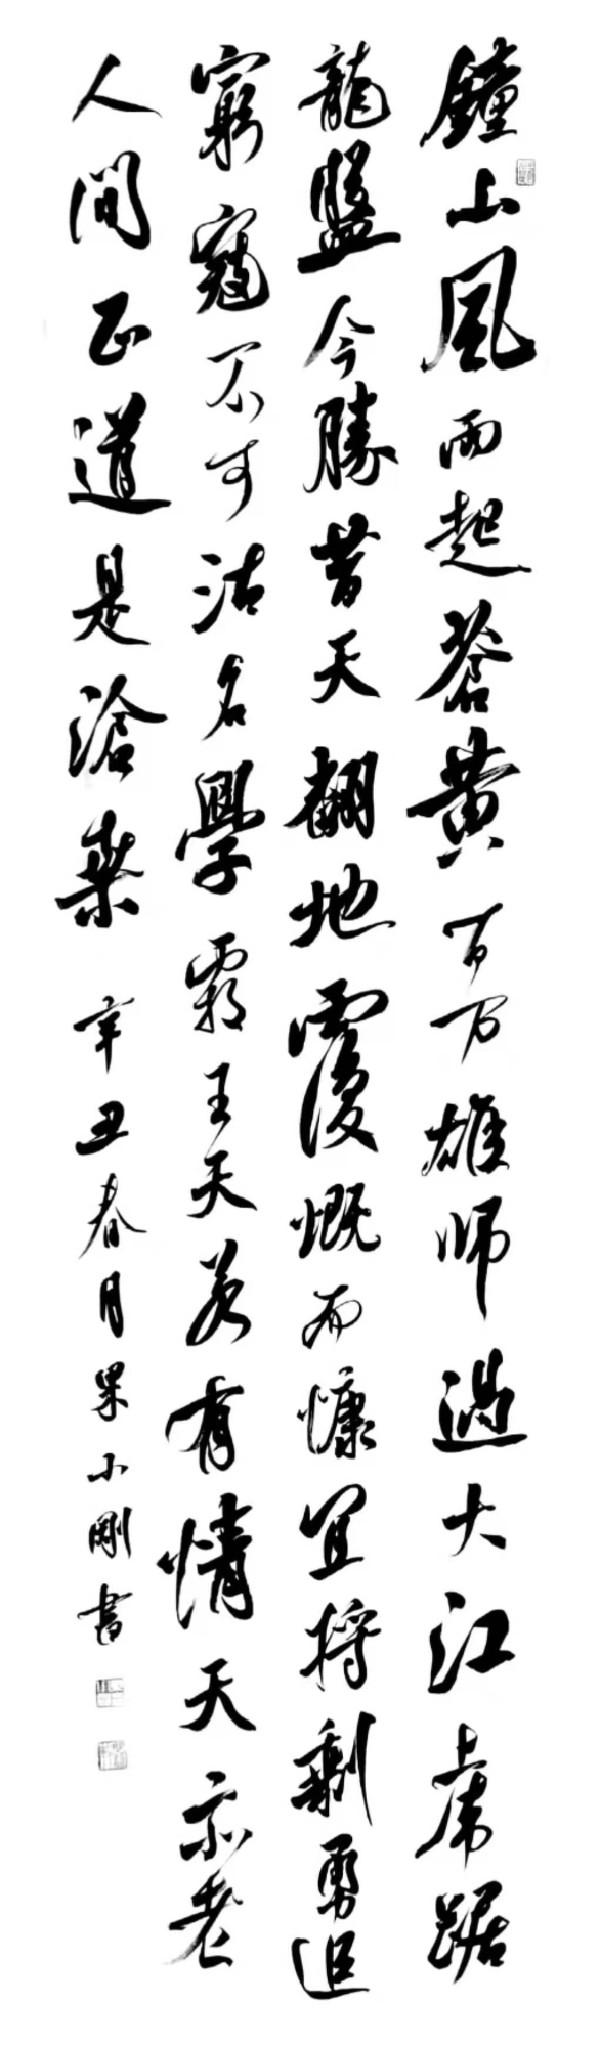 鐘山風雨起蒼黄百万雄师過大江虎踞
龍盤今勝昔天翻地覆慨而慷宜将剩勇追
窮寇不可沽名學霸王天若有情天亦老
人間正道是滄桑 辛丑春月果小剛書